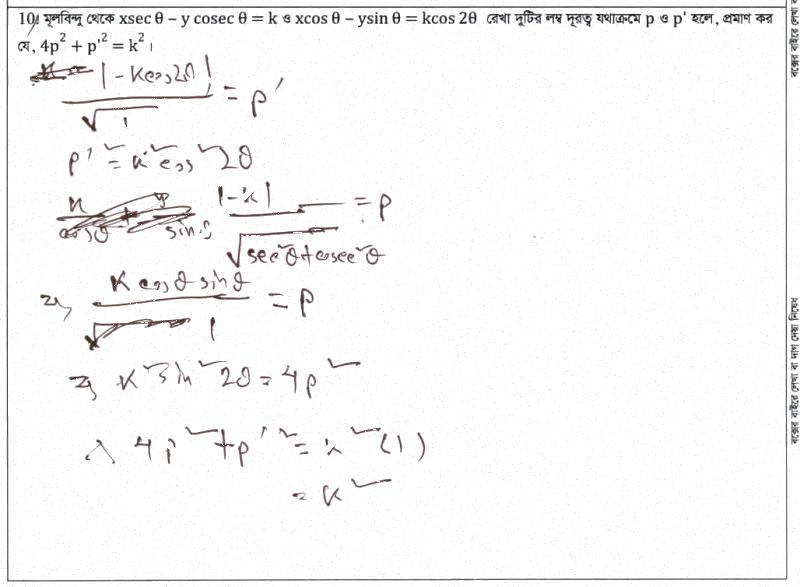 10. মূলবিন্দু থেকে xsec θ – y cosec θ = k ও xcos θ – ysin θ = kcos 2θ রেখা দুটির লম্ব দূরত্ব যথাক্রমে p ও p' হলে, প্রমাণ কর
যে, 4p² + p'² = k² ।
|-kcos2θ| / √1 = p'
p'² = k²cos²2θ
|-k| / √sec²θ+cosec²θ = p
⇒ k cosθ sinθ / 1 = p
⇒ k²sin²2θ = 4p²
∴ 4p²+p'² = k²(1)
= k²
বক্সের বাইরে লেখা বা দাগ দেয়া নিষেধ